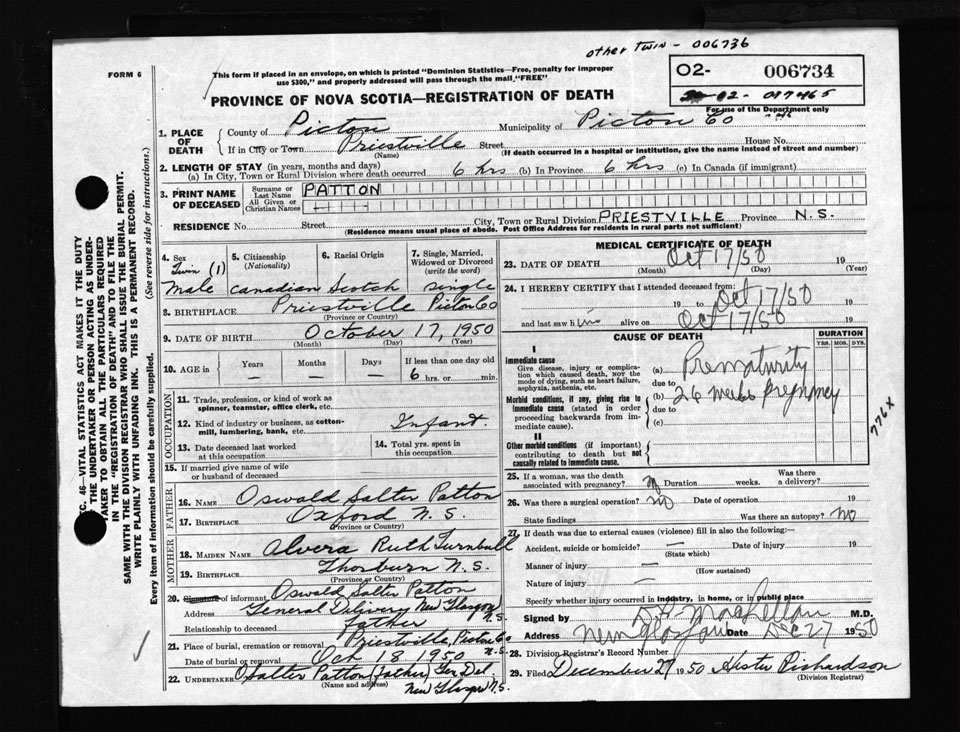 other Twin - 006736
FORM 6
This form if placed in an envelope, on which is printed "Dominion Statistics—Free, penalty for improper
use $300," and properly addressed will pass through the mail, "FREE"
02- 006734
02- 017465
For use of the Department only
PROVINCE OF NOVA SCOTIA—REGISTRATION OF DEATH
1. PLACE OF DEATH
County of Picton Municipality of Picton Co
If in City or Town Priestville Street House No.
(Name) (If death occurred in a hospital or institution, give the name instead of street and number)
2. LENGTH OF STAY (in years, months and days)
(a) In City, Town or Rural Division where death occurred 6 hrs (b) In Province 6 hrs (c) In Canada (if immigrant)
3. PRINT NAME OF DECEASED
Surname or Last Name PATTON
All Given or Christian Names — —
RESIDENCE No. Street City, Town or Rural Division PRIESTVILLE Province N.S.
(Residence means usual place of abode. Post Office Address for residents in rural parts not sufficient)
4. Sex
Twin (1)
male
5. Citizenship
(Nationality)
canadian
6. Racial Origin
Scotch
7. Single, Married,
Widowed or Divorced
(write the word)
single
8. BIRTHPLACE Priestville Picton Co
(Province or Country)
9. DATE OF BIRTH October 17, 1950
(Month) (Day) (Year)
10. AGE in
Years Months Days If less than one day old
— — — 6 hrs. or min.
OCCUPATION
11. Trade, profession, or kind of work as
spinner, teamster, office clerk, etc.
12. Kind of industry or business, as cotton-
mill, lumbering, bank, etc. Infant.
13. Date deceased last worked
at this occupation
14. Total yrs. spent in
this occupation
15. If married give name of wife
or husband of deceased
FATHER
16. NAME Oswald Salter Patton
17. BIRTHPLACE Oxford N.S.
(Province or Country)
MOTHER
18. MAIDEN NAME Alvera Ruth Turnbull
19. BIRTHPLACE Thorburn N.S.
(Province or Country)
20. Signature of informant Oswald Salter Patton
Address General Delivery New Glasgow N.S.
Relationship to deceased father
21. Place of burial, cremation or removal Priestville, Picton Co N.S.
Date of burial or removal Oct 18 1950
22. UNDERTAKER O Salter Patton (father) Gen Del.
(Name and address) New Glasgow N.S.
MEDICAL CERTIFICATE OF DEATH
23. DATE OF DEATH Oct 17/50
(Month) (Day) (Year)
24. I HEREBY CERTIFY that I attended deceased from:
19 to Oct 17/50 19
and last saw him alive on Oct 17/50 19
CAUSE OF DEATH
DURATION
YRS. MOS. DYS.
I
Immediate cause
Give disease, injury or complica-
tion which caused death, NOT the
mode of dying, such as heart failure,
asphyxia, asthenia, etc.
(a) Prematurity
due to
Morbid conditions, if any, giving rise to
immediate cause (stated in order
proceeding backwards from im-
mediate cause).
(b) 26 weeks pregnancy
due to
(c)
776X
II
Other morbid conditions (if important)
contributing to death but not
causally related to immediate cause.
25. If a woman, was the death
associated with pregnancy? Duration weeks. Was there
a delivery?
26. Was there a surgical operation? no Date of operation 19
State findings Was there an autopsy? no
27. If death was due to external causes (violence) fill in also the following:—
Accident, suicide or homicide? — Date of injury 19
(State which)
Manner of injury —
(How sustained)
Nature of injury —
Specify whether injury occurred in industry, in home, or in public place
Signed by M.D.
Address New Glasgow Date Dec 27 1950
28. Division Registrar's Record Number
29. Filed December 27 1950 Hester Richardson
(Division Registrar)
SEC. 46—VITAL STATISTICS ACT MAKES IT THE DUTY
OF THE UNDERTAKER OR PERSON ACTING AS UNDER-
TAKER TO OBTAIN ALL THE PARTICULARS REQUIRED
IN THE "REGISTRATION OF DEATH" AND TO FILE THE
SAME WITH THE DIVISION REGISTRAR WHO SHALL ISSUE THE BURIAL PERMIT.
WRITE PLAINLY WITH UNFADING INK. THIS IS A PERMANENT RECORD.
Every item of information should be carefully supplied. (See reverse side for instructions.)